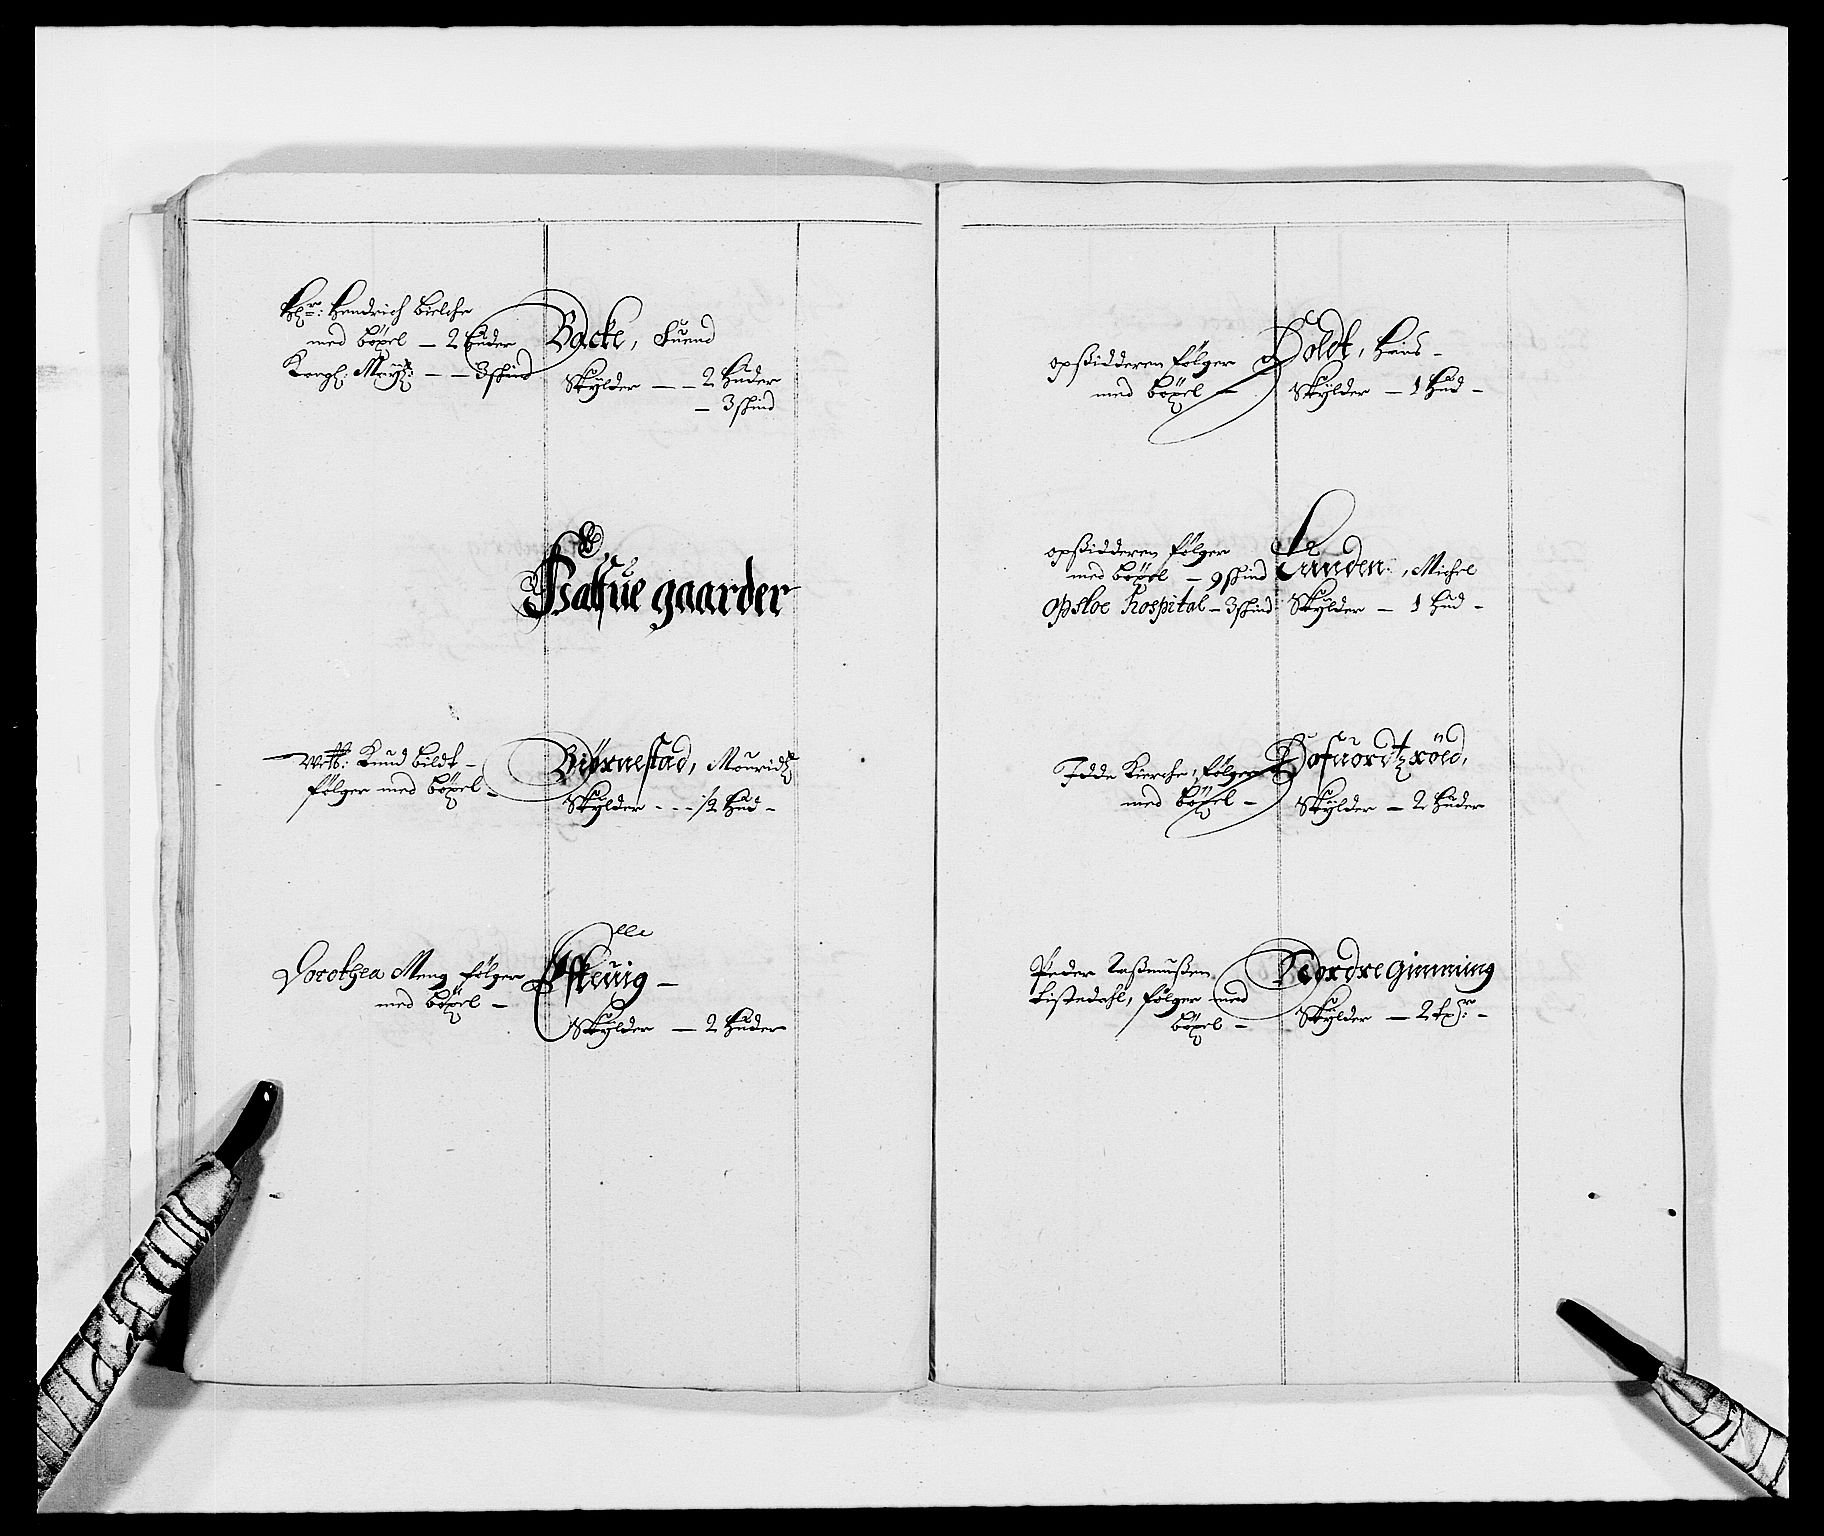 Hr: Hendrich Bielche
med böxel — 2 Huder
Kongl: Mayt: — — 3 skind
Backe, Suend
Skylder — — 2 Huder
— 3 skind
Halfue gaarder
Knud Bildt —
følger med böxel —
Biørnestad, Mouridtz
Skylder - - - ½ Hud —
Dorothea Meng følger
med böxel —
Skylder — 2 Huder
opsidderen følger
med böxel —
Holdt, Hans —
Skylder — 1 Hud —
opsidderen følger
med böxel — 9 skind
Opsloe Hospital — 3 skind
Lunden, Michel
Skylder — 1 Hud —
Idde Kierche, følger
med böxel —
Skylder — 2 Huder
Peder Rasmussen
Tistedahl, følger med
böxel —
Nordre Gimming
Skylder — 2